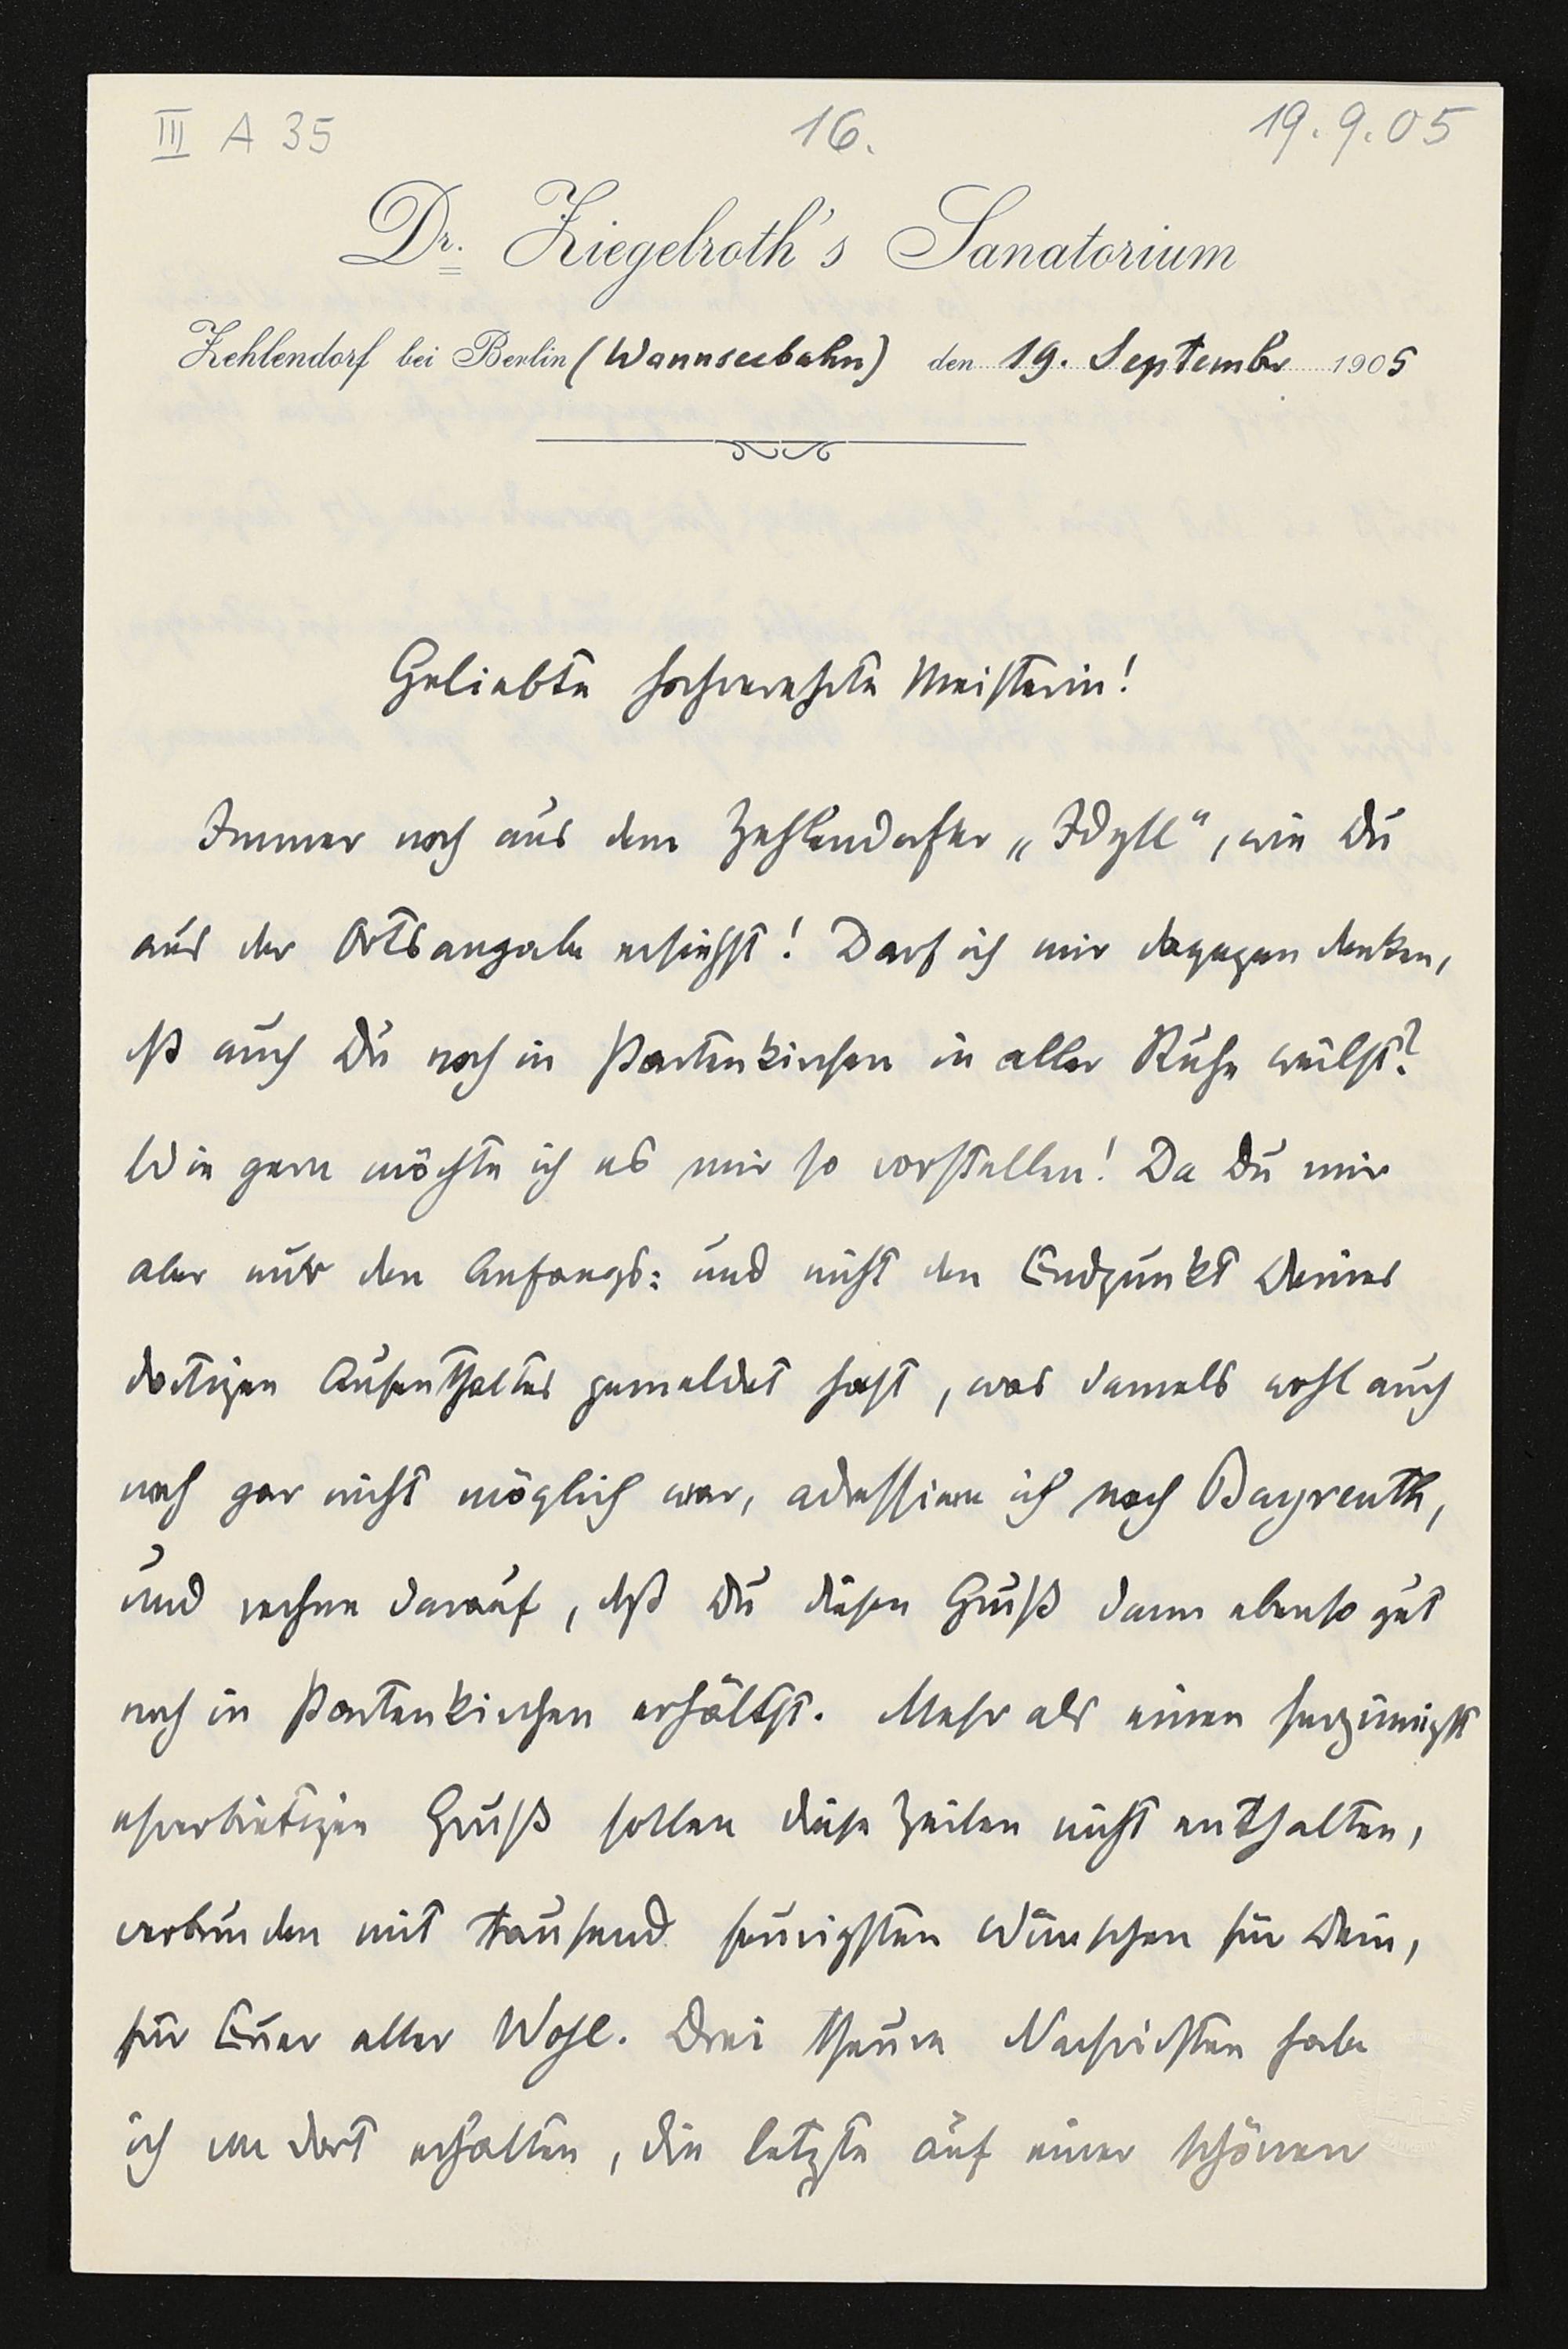 III A 35 16. 19.9.05
Dr. Ziegelroth's Sanatorium
Zehlendorf bei Berlin (Wannseebahn) den 19. Septembr 1905
Geliebte hochverehrte Meisterin!
Immer noch aus dem Zehlendorfer „Idyll“, wie Du
aus der Ortsangabe ersiehst! Darf ich mir dagegen denken,
dß auch Du noch in Partenkirchen in aller Ruhe weilst?
Wie gern möchte ich es mir so vorstellen! Da Du mir
aber nur den Anfangs: und nicht den Endpunkt Deines
dortigen Aufenthaltes gemeldet hast, was damals wohl auch
noch gar nicht möglich war, adressiere ich nach Bayreuth,
und rechne darauf, dß Du diesen Gruß dann ebenso gut
noch in Partenkirchen erhältst. Mehr als einen herzinnigst
ehrerbietigen Gruß sollen diese Zeilen nicht enthalten,
verbunden mit tausend innigsten Wünschen für Dein,
für Euer aller Wohl. Drei theure Nachrichten habe
ich von dort erhalten, die letzte auf einer schönen